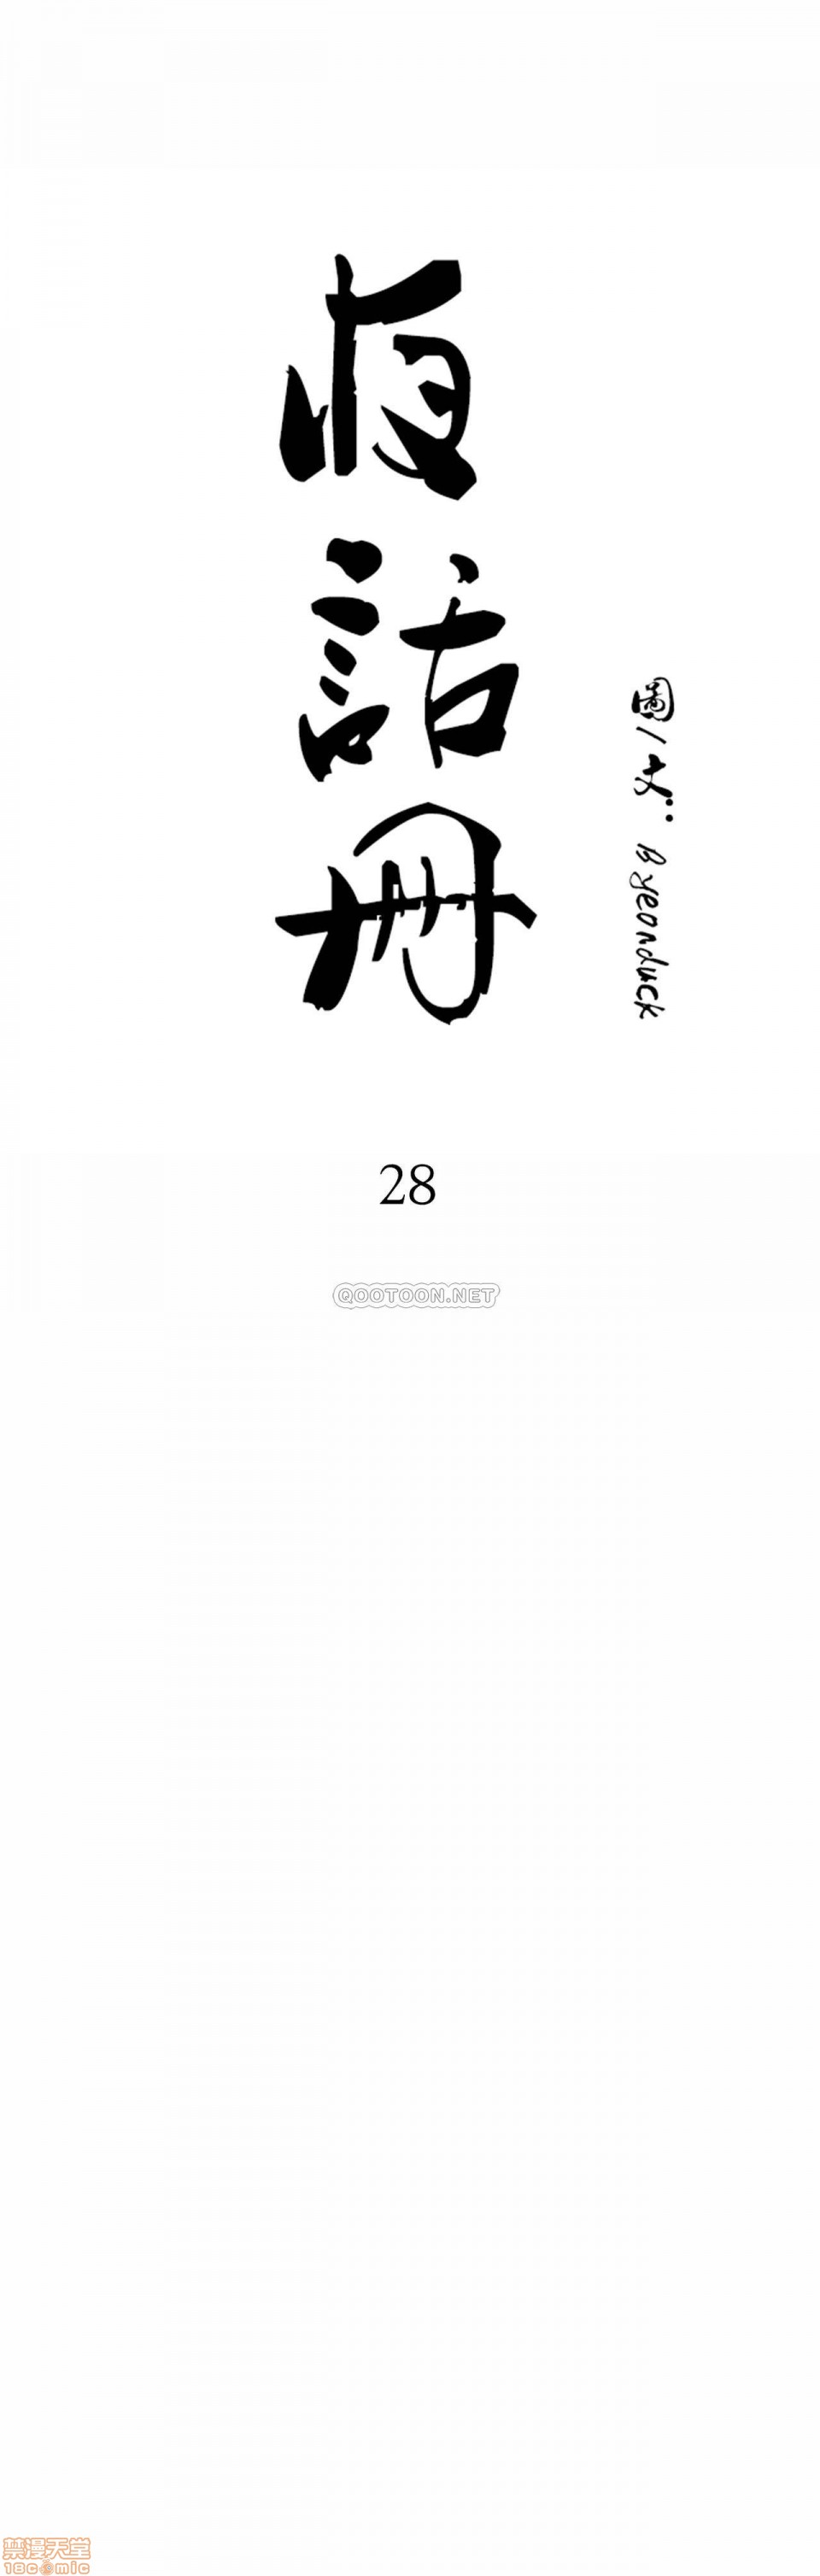 夜話冊
圖/文: Byeonduck
28
QOOTOON.NET
禁漫天堂
18comic